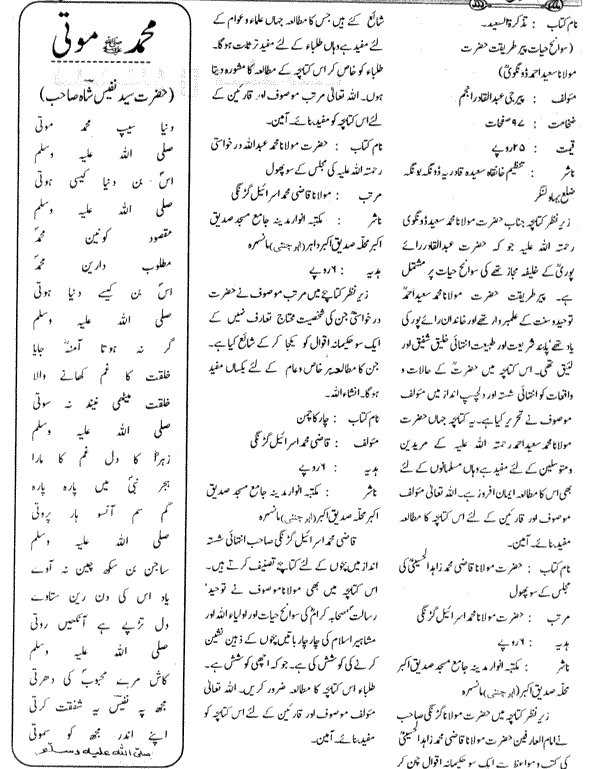 نام کتاب : تذکرۃ السعید۔
(سوانح حیات پیر طریقت حضرت
مولانا سعید احمد ڈونگویؒ)
مؤلف : پیر جی عبدالقادر انجم
ضخامت : ۹۷ صفحات
قیمت : ۲۵ روپے
ناشر : تنظیم خانقاہ سعیدہ قادریہ ڈونگہ بونگہ
ضلع بہاولنگر
زیر نظر کتابچہ جناب حضرت مولانا محمد سعید ڈونگوی
رحمتہ اللہ علیہ جو کہ حضرت عبدالقادر رائے
پوریؒ کے خلیفہ مجاز تھے کی سوانح حیات پر مشتمل
ہے۔ پیر طریقت حضرت مولانا محمد سعید احمدؒ
توحید و سنت کے علمبردار تھے اور خاندان رائے پور کی
یاد تھے' پابند شریعت اور طبیعت انتہائی خلیق شفیق اور
لئیق تھی۔ اس کتابچہ میں حضرتؒ کے حالات و
واقعات کو انتہائی شستہ اور دلچسپ انداز میں مؤلف
موصوف نے تحریر کیا ہے۔ یہ کتابچہ جہاں حضرت
مولانا محمد سعید احمد رحمتہ اللہ علیہ کے مریدین
و متوسلین کے لئے مفید ہے وہاں مسلمانوں کے لئے
بھی اس کا مطالعہ ایمان افروز ہے۔ اللہ تعالیٰ مؤلف
موصوف اور قارئین کے لئے اس کتابچہ کا مطالعہ
مفید بنائے۔ آمین۔
نام کتاب : حضرت مولانا قاضی محمد زاہد الحسینیؒ کی
مجلس کے سو پھول
مرتب : حضرت مولانا محمد اسرائیل گڑنگی
ہدیہ : ۶ روپے
ناشر : مکتبہ انوار مدینہ جامع مسجد صدیق اکبر
محلہ صدیق اکبر مانسہرہ
زیر نظر کتابچہ میں حضرت مولانا گڑنگی صاحب
نے امام العارفین حضرت مولانا قاضی محمد زاہد الحسینیؒ
کی کتب و مواعظ سے ایک سو حکیمانہ اقوال چن کر
شائع کئے ہیں جس کا مطالعہ جہاں علماء و عوام کے
لئے مفید ہے وہاں طلباء کے لئے مفید تر ثابت ہوگا۔
طلباء کو خاص کر اس کتابچہ کے مطالعہ کا مشورہ دیتا
ہوں۔ اللہ تعالیٰ مرتب موصوف اور قارئین کے
لئے اس کتابچہ کو مفید بنائے۔ آمین۔
نام کتاب : حضرت مولانا محمد عبداللہ درخواستی
رحمتہ اللہ علیہ کی مجلس کے سو پھول
مرتب : مولانا قاضی محمد اسرائیل گڑنگی
ناشر : مکتبہ انوار مدینہ جامع مسجد صدیق
اکبر محلہ صدیق اکبر مانسہرہ
ہدیہ : ۶ روپے
زیر نظر کتابچے میں مرتب موصوف نے حضرت
درخواستیؒ جن کی شخصیت محتاج تعارف نہیں کے
ایک سو حکیمانہ اقوال کو یکجا کر کے شائع کیا ہے۔
جن کا مطالعہ ہر خاص و عام کے لئے یکساں مفید
ہوگا۔ انشاء اللہ۔
نام کتاب : چار کا چمن
مؤلف : قاضی محمد اسرائیل گڑنگی
ہدیہ : ۶ روپے
ناشر : مکتبہ انوار مدینہ جامع مسجد صدیق
اکبر محلہ صدیق اکبر مانسہرہ
قاضی محمد اسرائیل گڑنگی صاحب انتہائی شستہ
انداز میں بچوں کے لئے کتابچے تصنیف کرتے ہیں۔
اس کتابچہ میں بھی مولانا موصوف نے توحید'
رسالت' صحابہ کرامؓ کی سوانح حیات اور اولیاء اللہ اور
مشاہیر اسلام کی چار چار باتیں بچوں کے ذہین نشین
کرنے کی کوشش کی ہے۔ جو کہ اچھی کوشش ہے۔
طلباء اس کتابچہ کا مطالعہ ضرور کریں۔ اللہ تعالیٰ
مؤلف موصوف اور قارئین کے لئے اس کتابچہ کو
مفید بنائے۔ آمین۔
محمد ﷺ موتی
(حضرت سید نفیس شاہ صاحب)
دنیا سیپ محمد موتی
صلی اللہ علیہ وسلم
اس بن دنیا کیسی ہوتی
صلی اللہ علیہ وسلم
مقصود کونین محمدؐ
مطلوب دارین محمدؐ
اس بن کیسے دنیا ہوتی
صلی اللہ علیہ وسلم
گر نہ ہوتا آمنہؓ جایا
خلقت کا غم کھانے والا
خلقت میٹھی نیند نہ سوتی
صلی اللہ علیہ وسلم
زہراؓ کا دل غم کا مارا
ہجر نبیؐ میں پارہ پارہ
گم سم آنسو ہار پروتی
صلی اللہ علیہ وسلم
ساجن بن سکھ چین نہ آوے
یاد اس کی دن رین ستاوے
دل تڑپے ہے آنکھیں روتی
صلی اللہ علیہ وسلم
کاش مرے محبوبؐ کی دھرتی
مجھ پہ نفیسؔ یہ شفقت کرتی
اپنے اندر مجھ کو سموتی
صلی اللہ علیہ وسلم